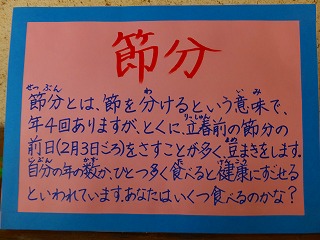 節分
節分とは、節を分けるという意味で、
年4回ありますが、とくに、立春前の節分の
前日(2月3日ごろ)をさすことが多く、豆まきをします。
自分の年の数か、ひとつ多く食べると健康にすごせる
といわれています。あなたはいくつ食べるのかな？